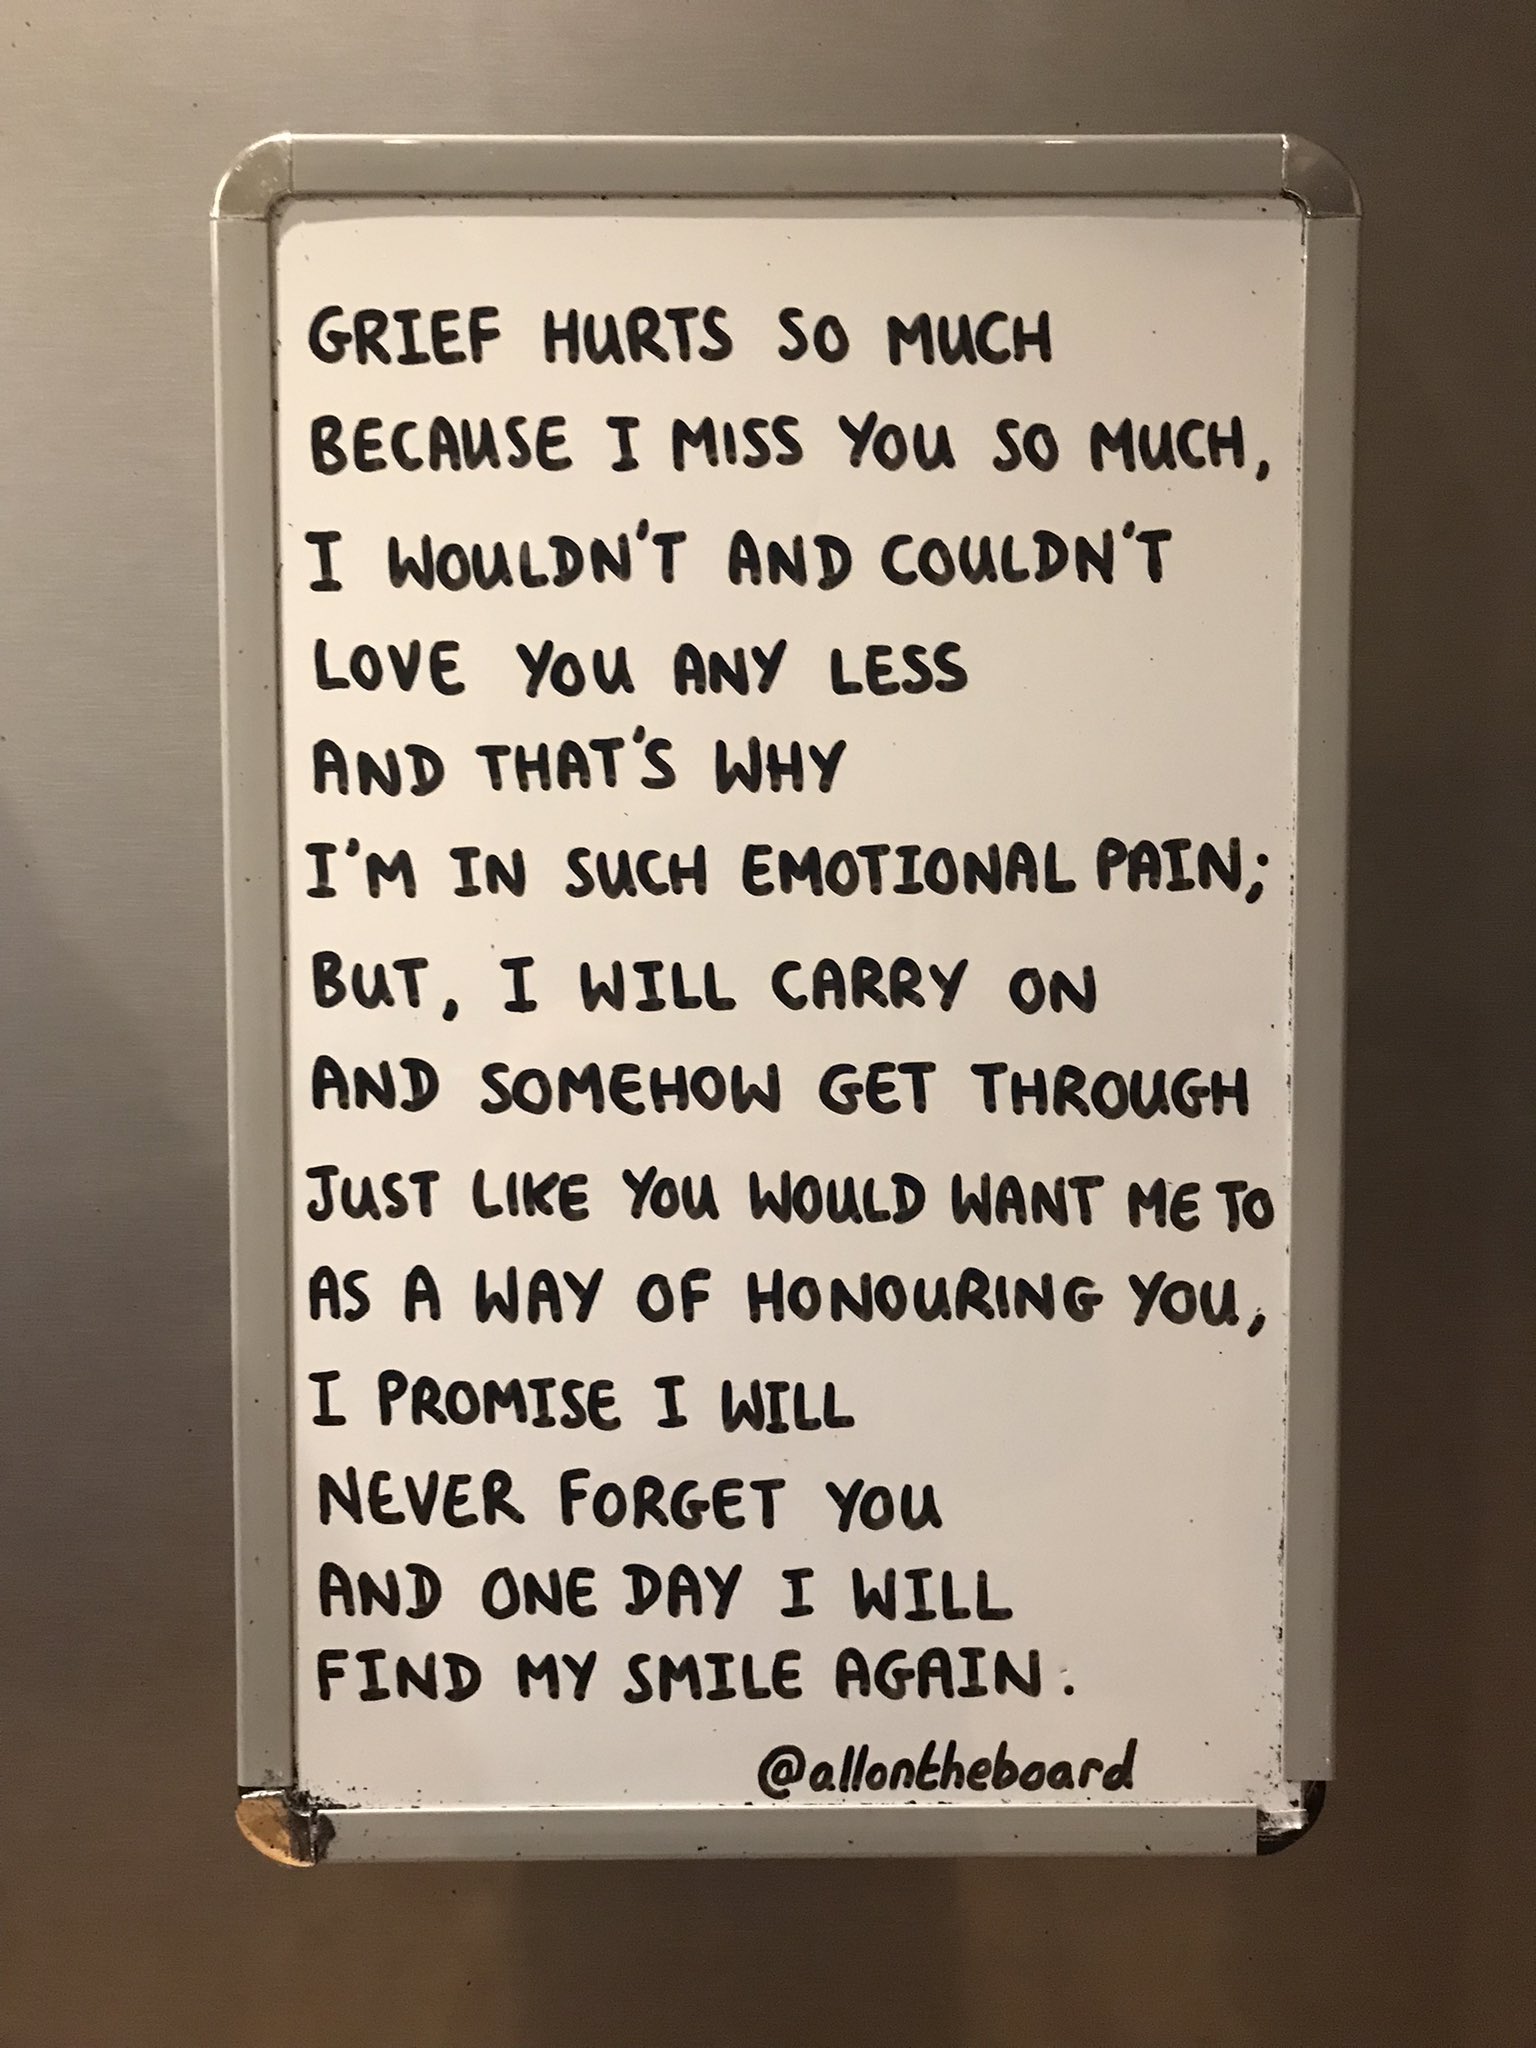 GRIEF HURTS SO MUCH
BECAUSE I MISS YOU SO MUCH,
I WOULDN'T AND COULDN'T
LOVE YOU ANY LESS
AND THAT'S WHY
I'M IN SUCH EMOTIONAL PAIN;
BUT, I WILL CARRY ON
AND SOMEHOW GET THROUGH
JUST LIKE YOU WOULD WANT ME TO
AS A WAY OF HONOURING YOU,
I PROMISE I WILL
NEVER FORGET YOU
AND ONE DAY I WILL
FIND MY SMILE AGAIN.
@allontheboard